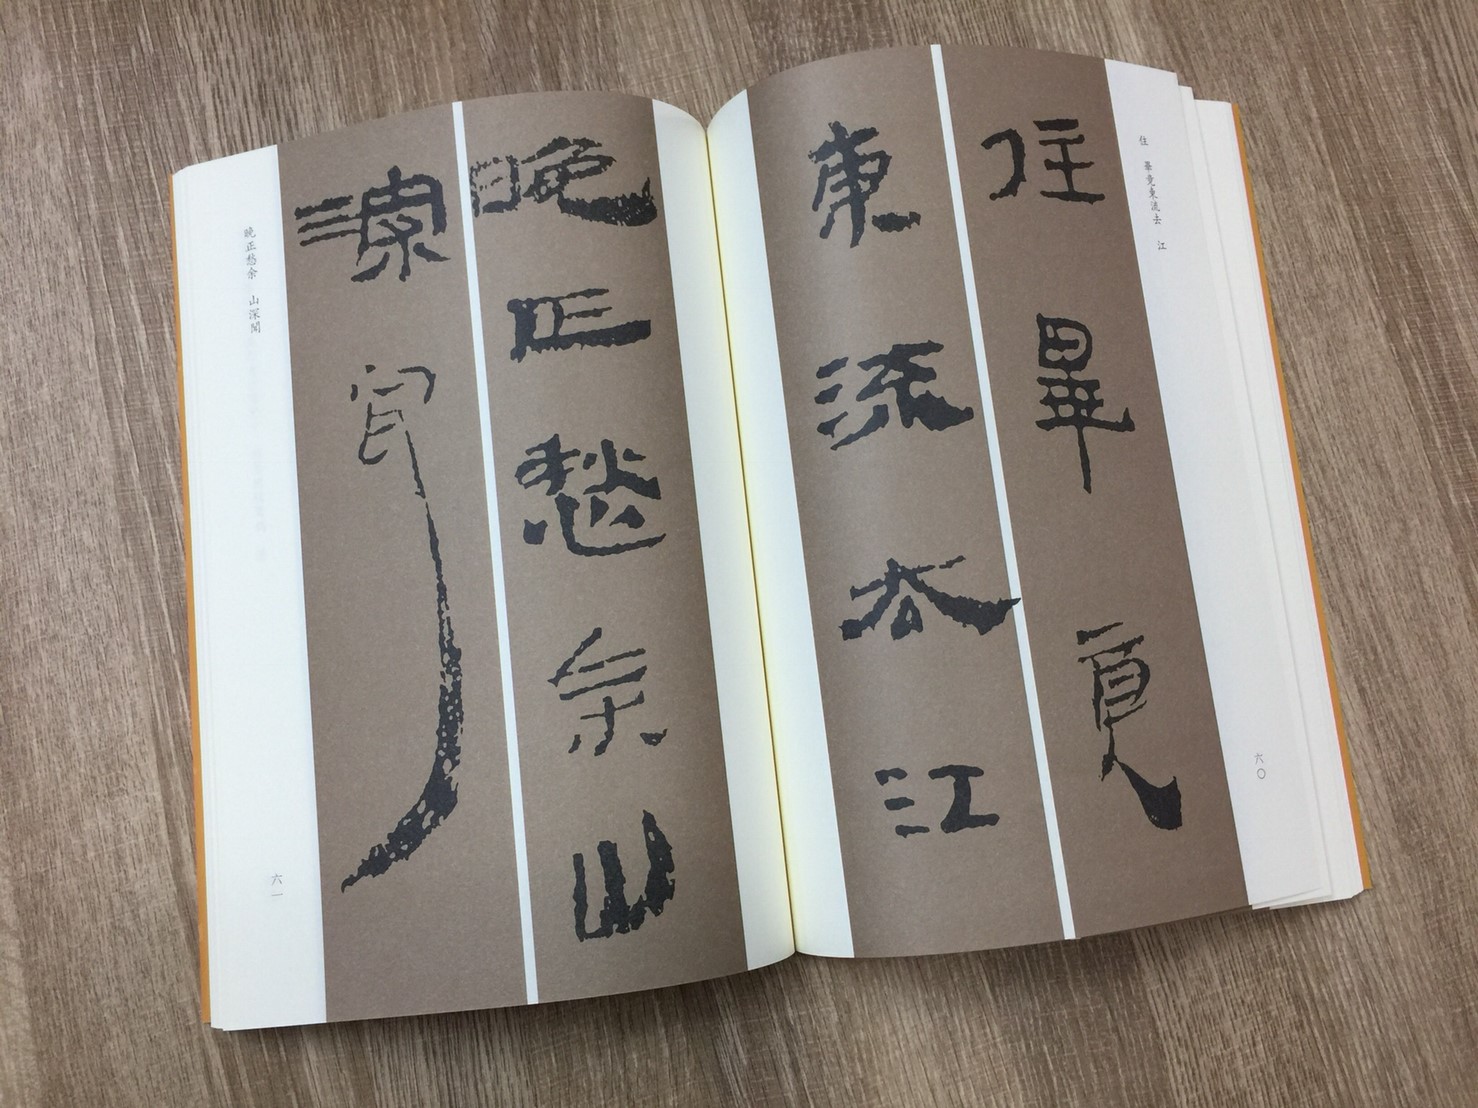 住 畢竟東流去 江
住畢竟
東流去江
六〇
晚正愁余山
深聞
晚正愁余 山深聞
六一